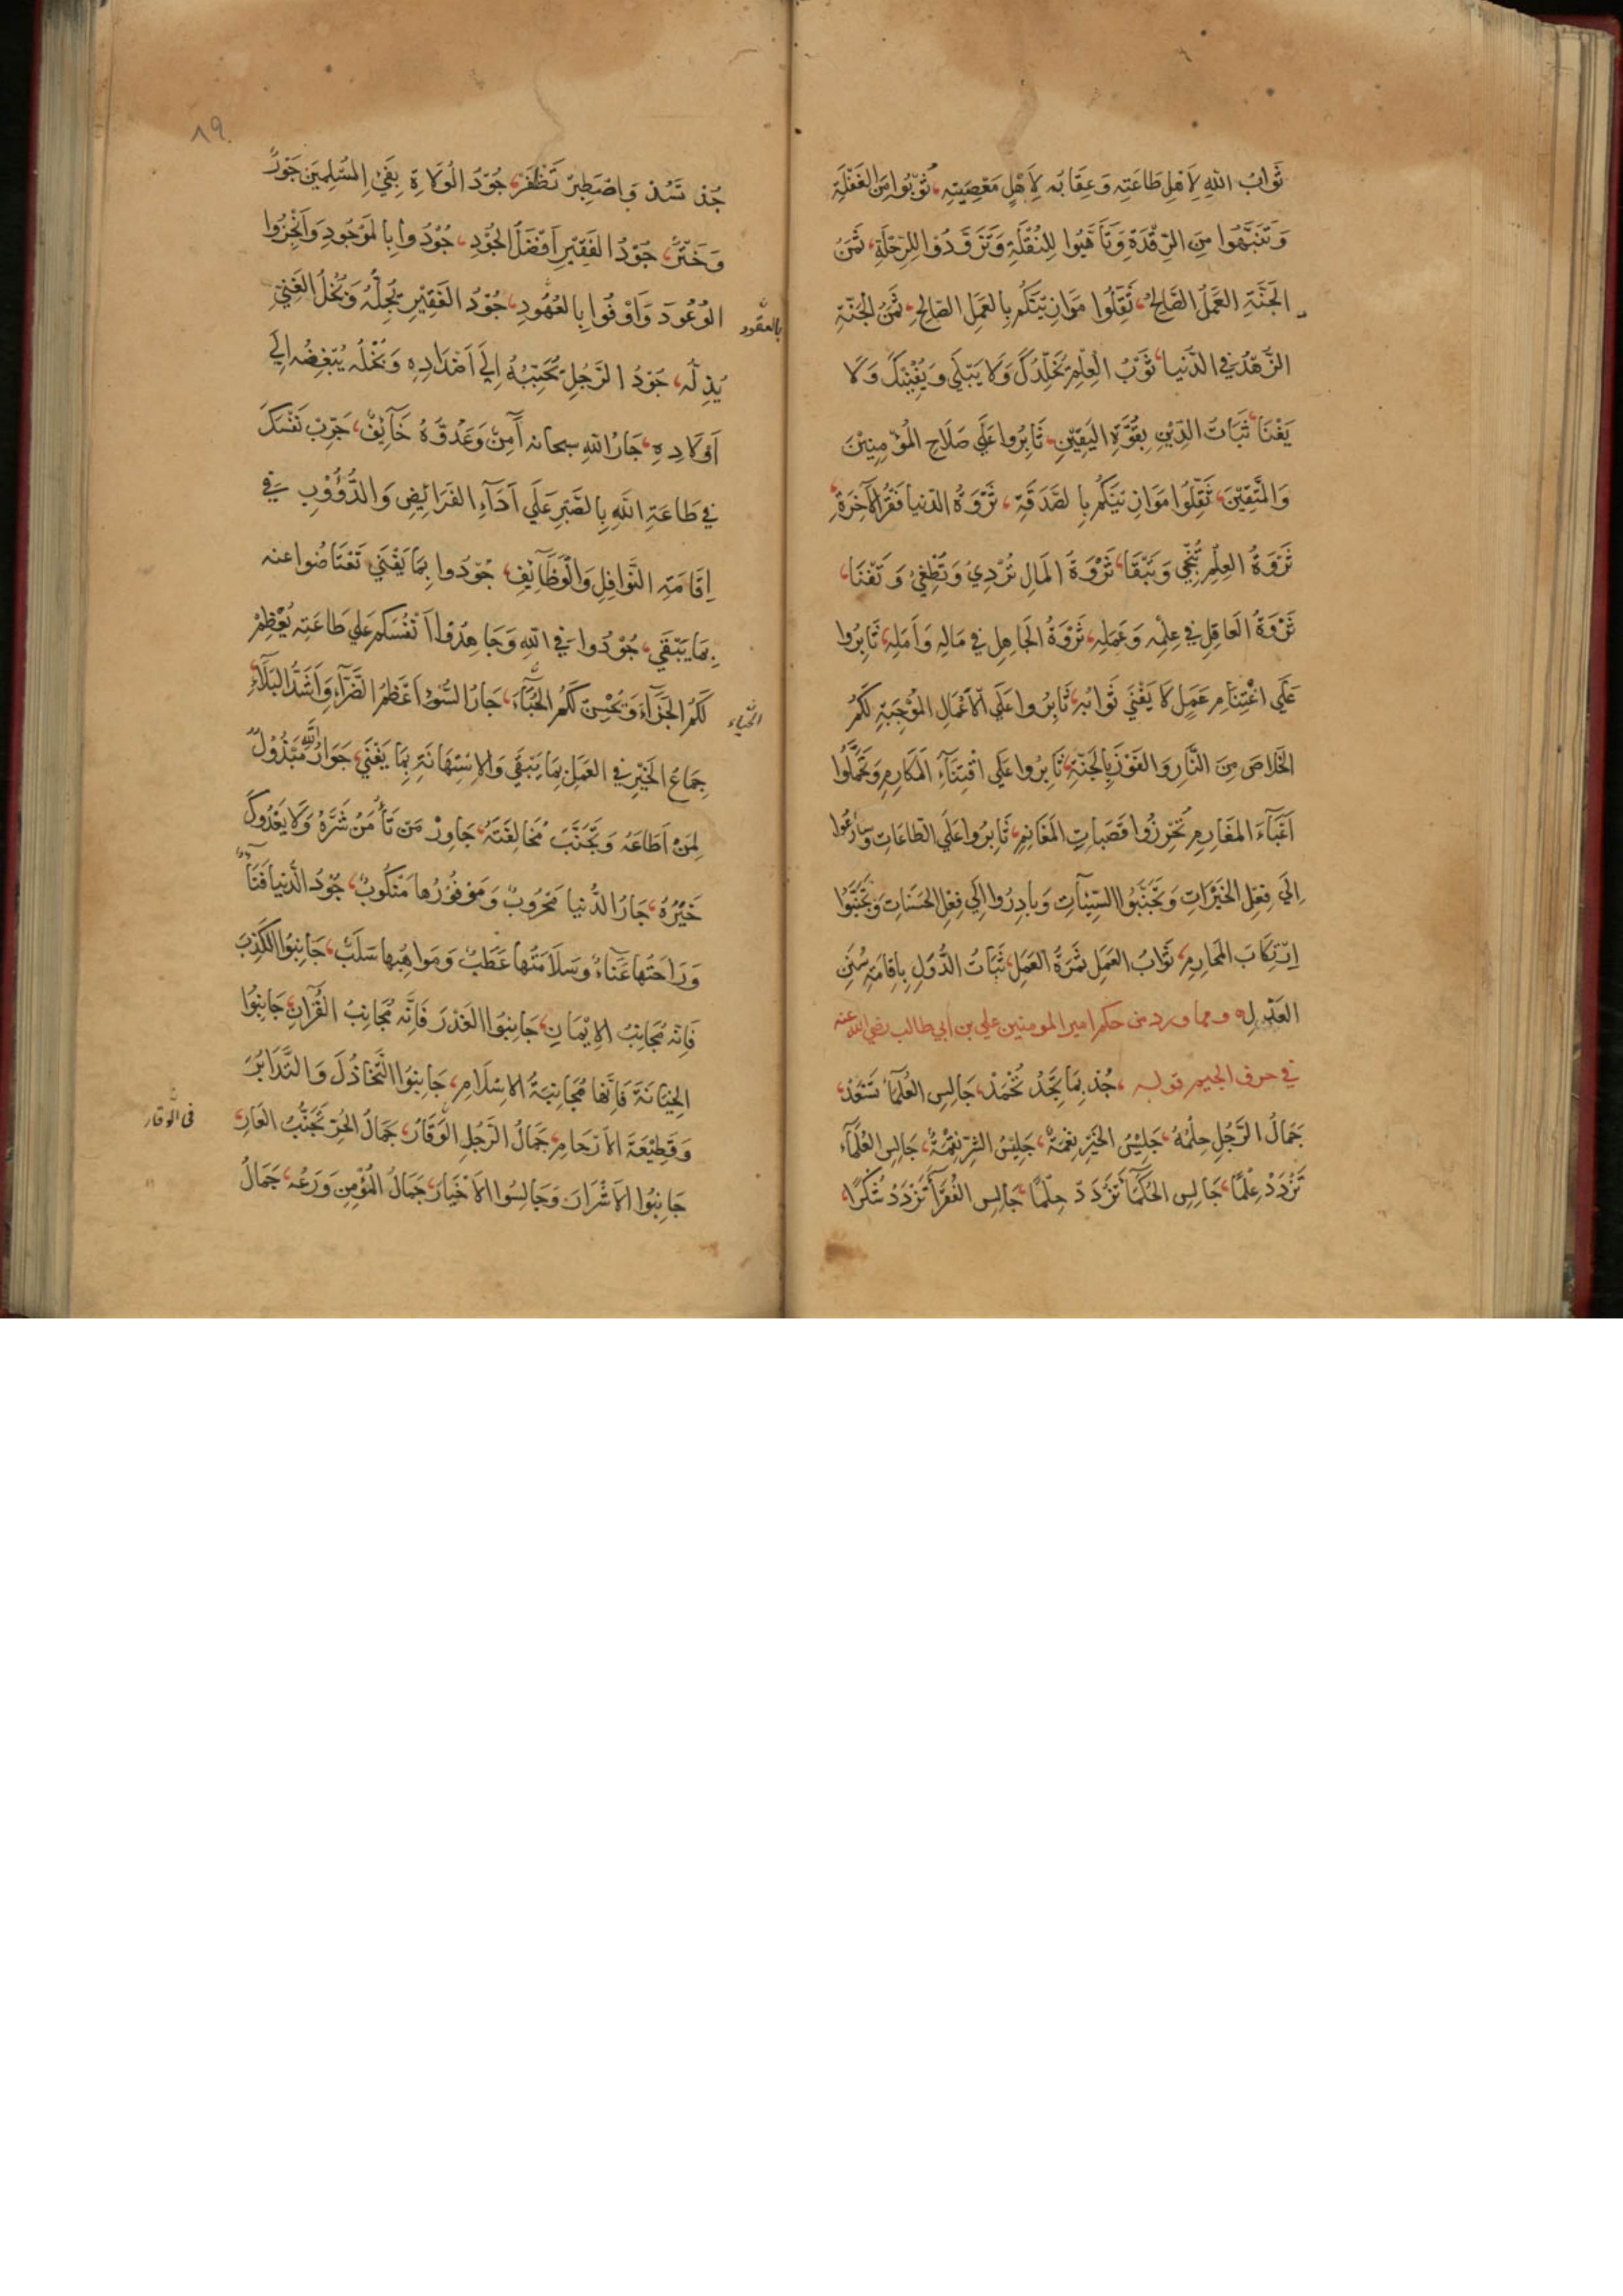 ثَوَابُ اللهِ لِاَهْلِ طَاعَتِهِ وَعِقَابُه لِاَهْلِ مَعْصِيَتِهِ، تُوبُوا مِنَ الغَفْلَةِ
وَتَنَبَّهُوا مِنَ الرَّقْدَةِ وَتَأَهَّبُوا لِلنُّقْلَةِ وَتَزَوَّدُوا لِلرِّحْلَةِ، ثَمَنُ
الجَنَّةِ العَمَلُ الصَّالِحُ، ثَقِّلُوا مَوَازِيْنَكُم بِالعَمَلِ الصَّالِحِ، ثَمَنُ الجَنَّةِ
الزُّهْدُ فِي الدُّنْيا، ثَوْبُ الْعِلْمِ يُخَلِّدُكَ وَلَا يَبْلَي وَيُبْقِيْكَ وَلَا
يَفْنَا، ثَبَاتُ الدِّيْنِ بِقُوَّةِ اليَقِيْنِ، ثَابِرُوا عَلَي صَلَاحِ المُؤْمِنِيْنَ
وَالمُتَّقِيْنَ، ثَقِّلُوا مَوَازِيْنَكُم بِالصَّدَقَةِ، ثَرْوَةُ الدّنيا فَقْرُ الآخِرَةِ،
ثَرْوَةُ العِلْمِ تُنْجِي وَتَبْقَا، ثَرْوَةُ المَالِ تُرْدِيْ وَتُطْغِيْ وَتَفْنَا،
ثَرْوَةُ العَاقِلِ فِي عِلْمِه وَعَمَلِهِ، ثَرْوَةُ الجَاهِلِ فِي مَالِهِ وَاَمَلِهِ، ثَابِرُوا
عَلَي اغْتِنَامِ عَمَلٍ لَا يَفْنَي ثَوَابُه، ثَابِرُوا عَلَي الْاَعْمَالِ المُوْجِبَةِ لَكُمُ
الخَلَاصَ مِنَ النَّارِ وَالفَوْزَ بِالجَنَّةِ، ثَابِرُوا عَلَي اقْتِنَآءِ المَكَارِمِ وَتَحَمَّلُوا
اَعْبَآءَ المَغَارِمِ تُحْرِزُوا قَصَبَاتِ المَغَانِمِ، ثَابِرُوا عَلَي الطَاعَاتِ وَسَارِعُوا
اِلَي فِعْلِ الخَيْرَاتِ وَتَجَنَّبُوا السَّيِّئَاتِ وَبَادِرُوا اِلَي فِعْلِ الحَسَنَاتِ وَتَجَنَّبُوا
اِرْتِكَابَ المَحَارِمِ، ثَوَابُ العَمَلِ ثَمَرَةُ العَمَلِ، ثَبَاتُ الدُّوَلِ بِاِقَامَةِ سُنَنِ
العَدْلِ ه ومما ورد من حكم امير المومنين علي بن ابي طالب رضي الله عنه
في حرف الجيم قوله، جُدْ بِمَا تَجِدُ تُحْمَدْ، جَالِسِ العُلَمَآءَ تَسْعَدْ،
جَمَالُ الرَّجُلِ حِلْمُهُ، جَلِيْسُ الخَيْرِ نِعْمَةٌ، جَلِيْسُ الشَرِّ نِقْمَةٌ، جَالِسِ العُلَمَآءَ
تَزْدَدْ عِلْمًا، جَالِسِ الحُكَمَآءَ تَزْدَدْ حِلْمًا، جَالِسِ الفُقَرَآءَ تَزْدَدْ شُكْرًا،
٨٩
جُدْ تَسُدْ وَاصْطَبِرْ تَظْفَرْ، جُوْدُ الوُلَاةِ بِفَيْءِ المُسْلِمِينَ جَوْرٌ
وَخَتْرٌ، جُوْدُ الفَقِيْرِ اَفْضَلُ الجُوْدِ، جُوْدُوا بِالمَوْجُودِ وَاَنْجِزُوا
الوُعُودَ وَاَوْفُوا بِالعُهُودِ، جُوْدُ الفَقِيْرِ يُجِلُّهُ وَبُخْلُ الغَنِيِّ
بالعقود
يُذِلُّه، جُوْدُ الرَّجُلِ يُحَبِّبُهُ اِلَي اَضْدَادِهِ وَبُخْلُه يُبَغِّضُه اِلَي
اَوْلَادِهِ، جَارُ اللهِ سبحانه آمِنٌ وَعَدُوُّهُ خَآئِفٌ، جَرِّبْ نَفْسَكَ
فِي طَاعَةِ اللهِ بِالصَّبْرِ عَلَي اَدَآءِ الفَرَائِضِ وَالدُّؤُوْبِ فِي
اِقَامَةِ النَّوَافِلِ وَالْوَظَآئِفِ، جُوْدُوا بِمَا يَفْنَي تَعْتَاضُوا عنه
بِمَا يَبْقَي، جُوْدُوا فِي اللهِ وَجَاهِدُوْا اَنْفُسَكم عَلي طَاعَتِه يُعْظِمْ
لَكُمُ الجَزَآءَ وَيُحْسِنْ لَكُمُ الحِبَآءَ، جَارُ السُّوْءِ اَعْظَمُ الضَّرَآءِ وَاَشَدُّ البَلَآءِ،
الحياء
جِمَاعُ الخَيْرِ فِي العَمَلِ بِمَا يَبْقَي وَالاِسْتِهَانَةِ بِمَا يَفْنَي، جِوَارُ اللهِ مَبْذُوْلٌ
لِمَنْ اَطَاعَهُ وَتَجَنَّبَ مُخَالَفَتَهُ، جَاوِرْ مَنْ تَأْمَنُ شَرَّهُ وَلَا يَعْدُوكَ
خَيْرُهُ، جَارُ الدُّنيا مَحْرُوبٌ وَمَوْفُوْرُها مَنْكُوبٌ، جُوْدُ الدُّنْيا فَنَآءٌ
وَرَاحَتُها عَنَاءٌ وَسَلَامَتُها عَطَبٌ وَمَوَاهِبُها سَلَبٌ، جَانِبُوا الكَذِبَ
فَاِنّه مُجَانِبُ الاِيْمَانِ، جَانِبُوا الغَدْرَ فَاِنَّه مُجَانِبُ القُرْآنِ، جَانِبُوا
الخِيَانَةَ فَاِنَّها مُجَانِبَةُ الاِسْلَامِ، جَانِبُوا التَّخَاذُلَ وَالتَّدَابُرَ
وَقَطِيْعَةَ الاَرْحَامِ، جَمَالُ الرَّجُلِ الوَقَارُ، جَمَالُ الحُرِّ تَجَنُّبُ العَارِ،
في الوقار
جَانِبُوا الاَشْرَارَ وَجَالِسُوا الاَخْيَارَ، جَمَالُ المُؤْمِنِ وَرَعُه، جَمَالُ